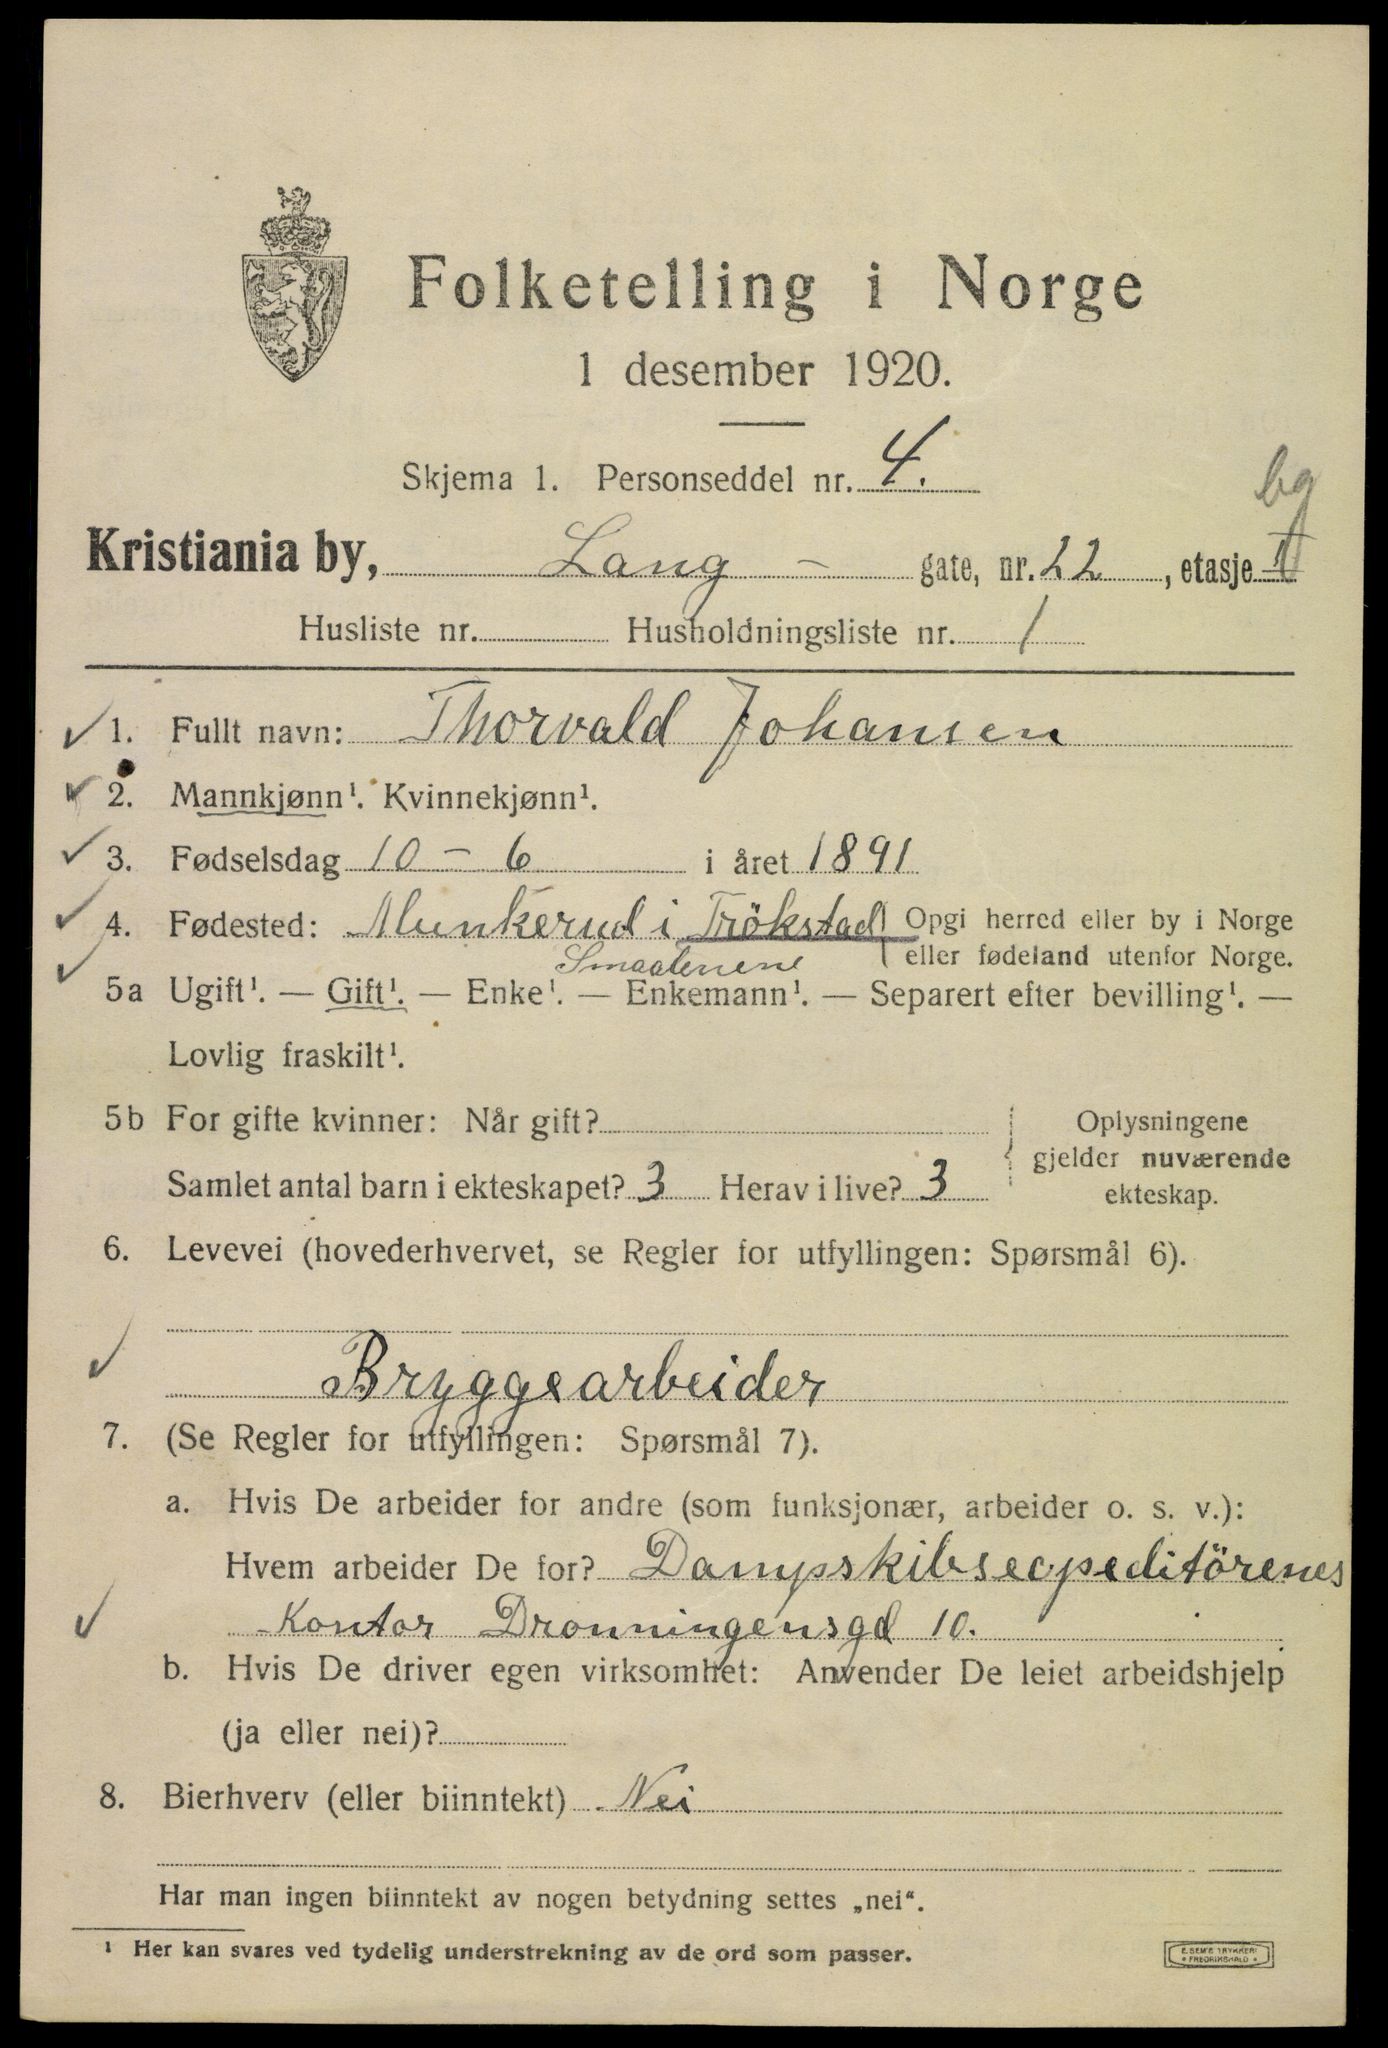 Folketelling i Norge
1 desember 1920.
Skjema 1. Personseddel nr. 4.
bg
Kristiania by, Lang - gate, nr. 22, etasje
Husliste nr. Husholdningsliste nr. 1
1. Fullt navn: Thorvald Johansen
2. Mannkjønn¹. Kvinnekjønn¹.
3. Fødselsdag 10 - 6 i året 1891
4. Fødested: Munkerud i Trökstad Opgi herred eller by i Norge
Smaalenene eller fødeland utenfor Norge.
5a Ugift¹. — Gift¹. — Enke¹. — Enkemann¹. — Separert efter bevilling¹. —
Lovlig fraskilt¹.
5b For gifte kvinner: Når gift? Oplysningene
gjelder nuværende
Samlet antal barn i ekteskapet? 3 Herav i live? 3 ekteskap.
6. Levevei (hovederhvervet, se Regler for utfyllingen: Spørsmål 6).
Bryggearbeider
7. (Se Regler for utfyllingen: Spørsmål 7).
a. Hvis De arbeider for andre (som funksjonær, arbeider o. s. v.):
Hvem arbeider De for? Dampskibsexpeditörenes
Kontor Dronningensgd 10.
b. Hvis De driver egen virksomhet: Anvender De leiet arbeidshjelp
(ja eller nei)?
8. Bierhverv (eller biinntekt) Nei
Har man ingen biinntekt av nogen betydning settes „nei“.
¹ Her kan svares ved tydelig understrekning av de ord som passer.
E. SEM'S TRYKKERI
• FREDRIKSHALD •